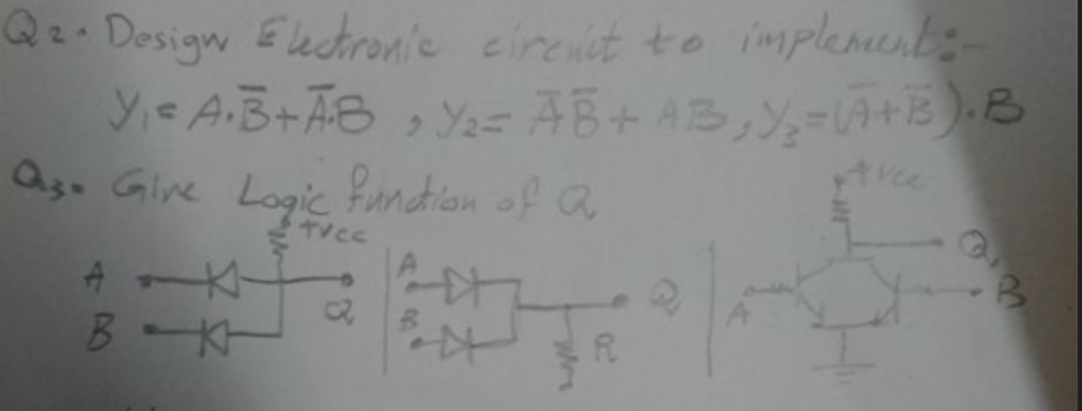 Q2. Design Electronic circuit to implement:-
Y₁= A.B̅+A̅.B , Y₂= A̅B̅ + AB, Y₃=(A̅+B̅).B
Q3. Give Logic function of Q
+Vcc
A
Q
B
A
B
Q
R
+Vcc
Q
A
B